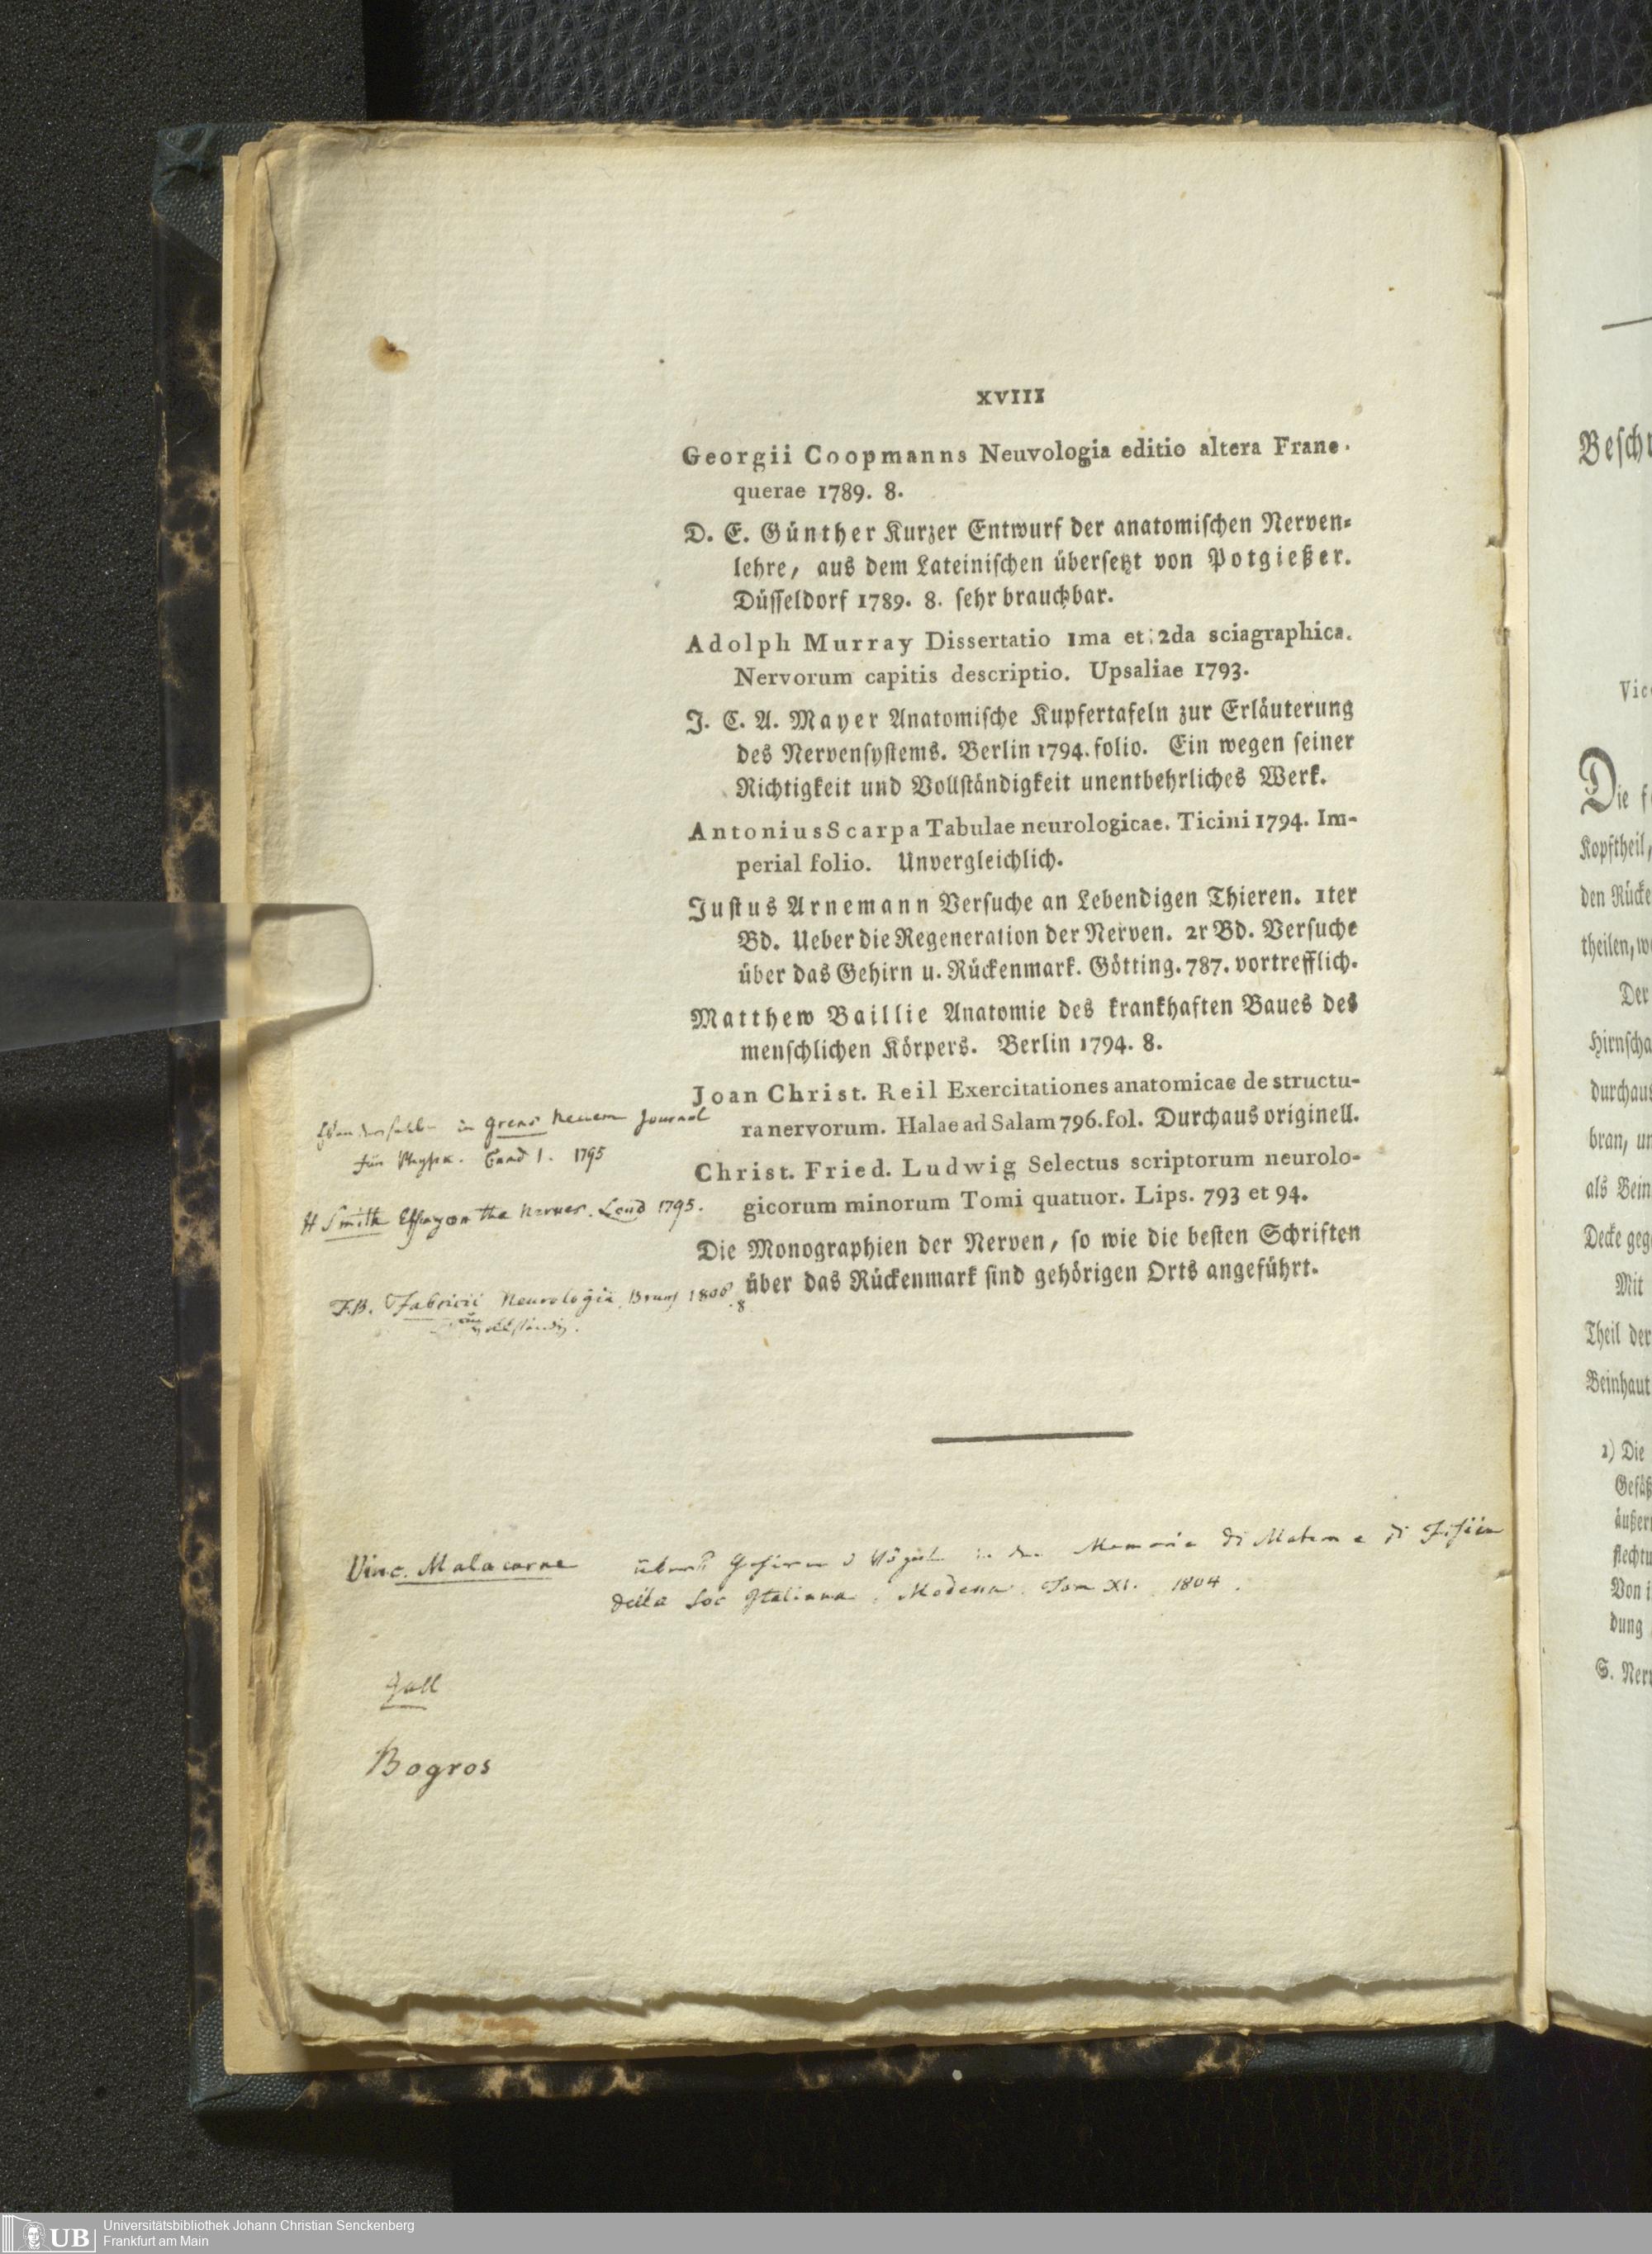 XVIII
Georgii Coopmanns Neuvologia editio altera Frane-
querae 1789. 8.
D. E. Günther Kurzer Entwurf der anatomiſchen Nerven-
lehre, aus dem Lateiniſchen überſetzt von Potgießer.
Düſſeldorf 1789. 8. ſehr brauchbar.
Adolph Murray Dissertatio 1ma et 2da sciagraphica.
Nervorum capitis descriptio. Upsaliae 1793.
J. C. A. Mayer Anatomiſche Kupfertafeln zur Erläuterung
des Nervenſyſtems. Berlin 1794. folio. Ein wegen ſeiner
Richtigkeit und Vollſtändigkeit unentbehrliches Werk.
Antonius Scarpa Tabulae neurologicae. Ticini 1794. Im-
perial folio. Unvergleichlich.
Juſtus Arnemann Verſuche an Lebendigen Thieren. 1ter
Bd. Ueber die Regeneration der Nerven. 2r Bd. Verſuche
über das Gehirn u. Rückenmark. Götting. 787. vortrefflich.
Matthew Baillie Anatomie des krankhaften Baues des
menſchlichen Körpers. Berlin 1794. 8.
Joan Christ. Reil Exercitationes anatomicae de structu-
ra nervorum. Halae ad Salam 796. fol. Durchaus originell.
Christ. Fried. Ludwig Selectus scriptorum neurolo-
gicorum minorum Tomi quatuor. Lips. 793 et 94.
Die Monographien der Nerven, ſo wie die beſten Schriften
über das Rückenmark ſind gehörigen Orts angeführt.
in Grens neuem Journal
für Physik. Band 1. 1795
H Smith Essay on the Nerves. Lond 1795.
F.B. Fabricii Neurologia 1806. 8
Vinc. Malacarne Gehirn d Vögel in den Memorie di Matem e di Fisica
della Soc Italiana. Modena. Tom XI. 1804.
Gall
Bogros
Beſchr
Vic
Die f
Kopftheil,
den Rücke
theilen, w
Der
Hirnſcha
durchaus
bran, un
als Bein
Decke geg
Mit
Theil der
Beinhaut
1) Die
Gefäß
äußer
flecht
Von i
dung
S. Ner
UB
Universitätsbibliothek Johann Christian Senckenberg
Frankfurt am Main